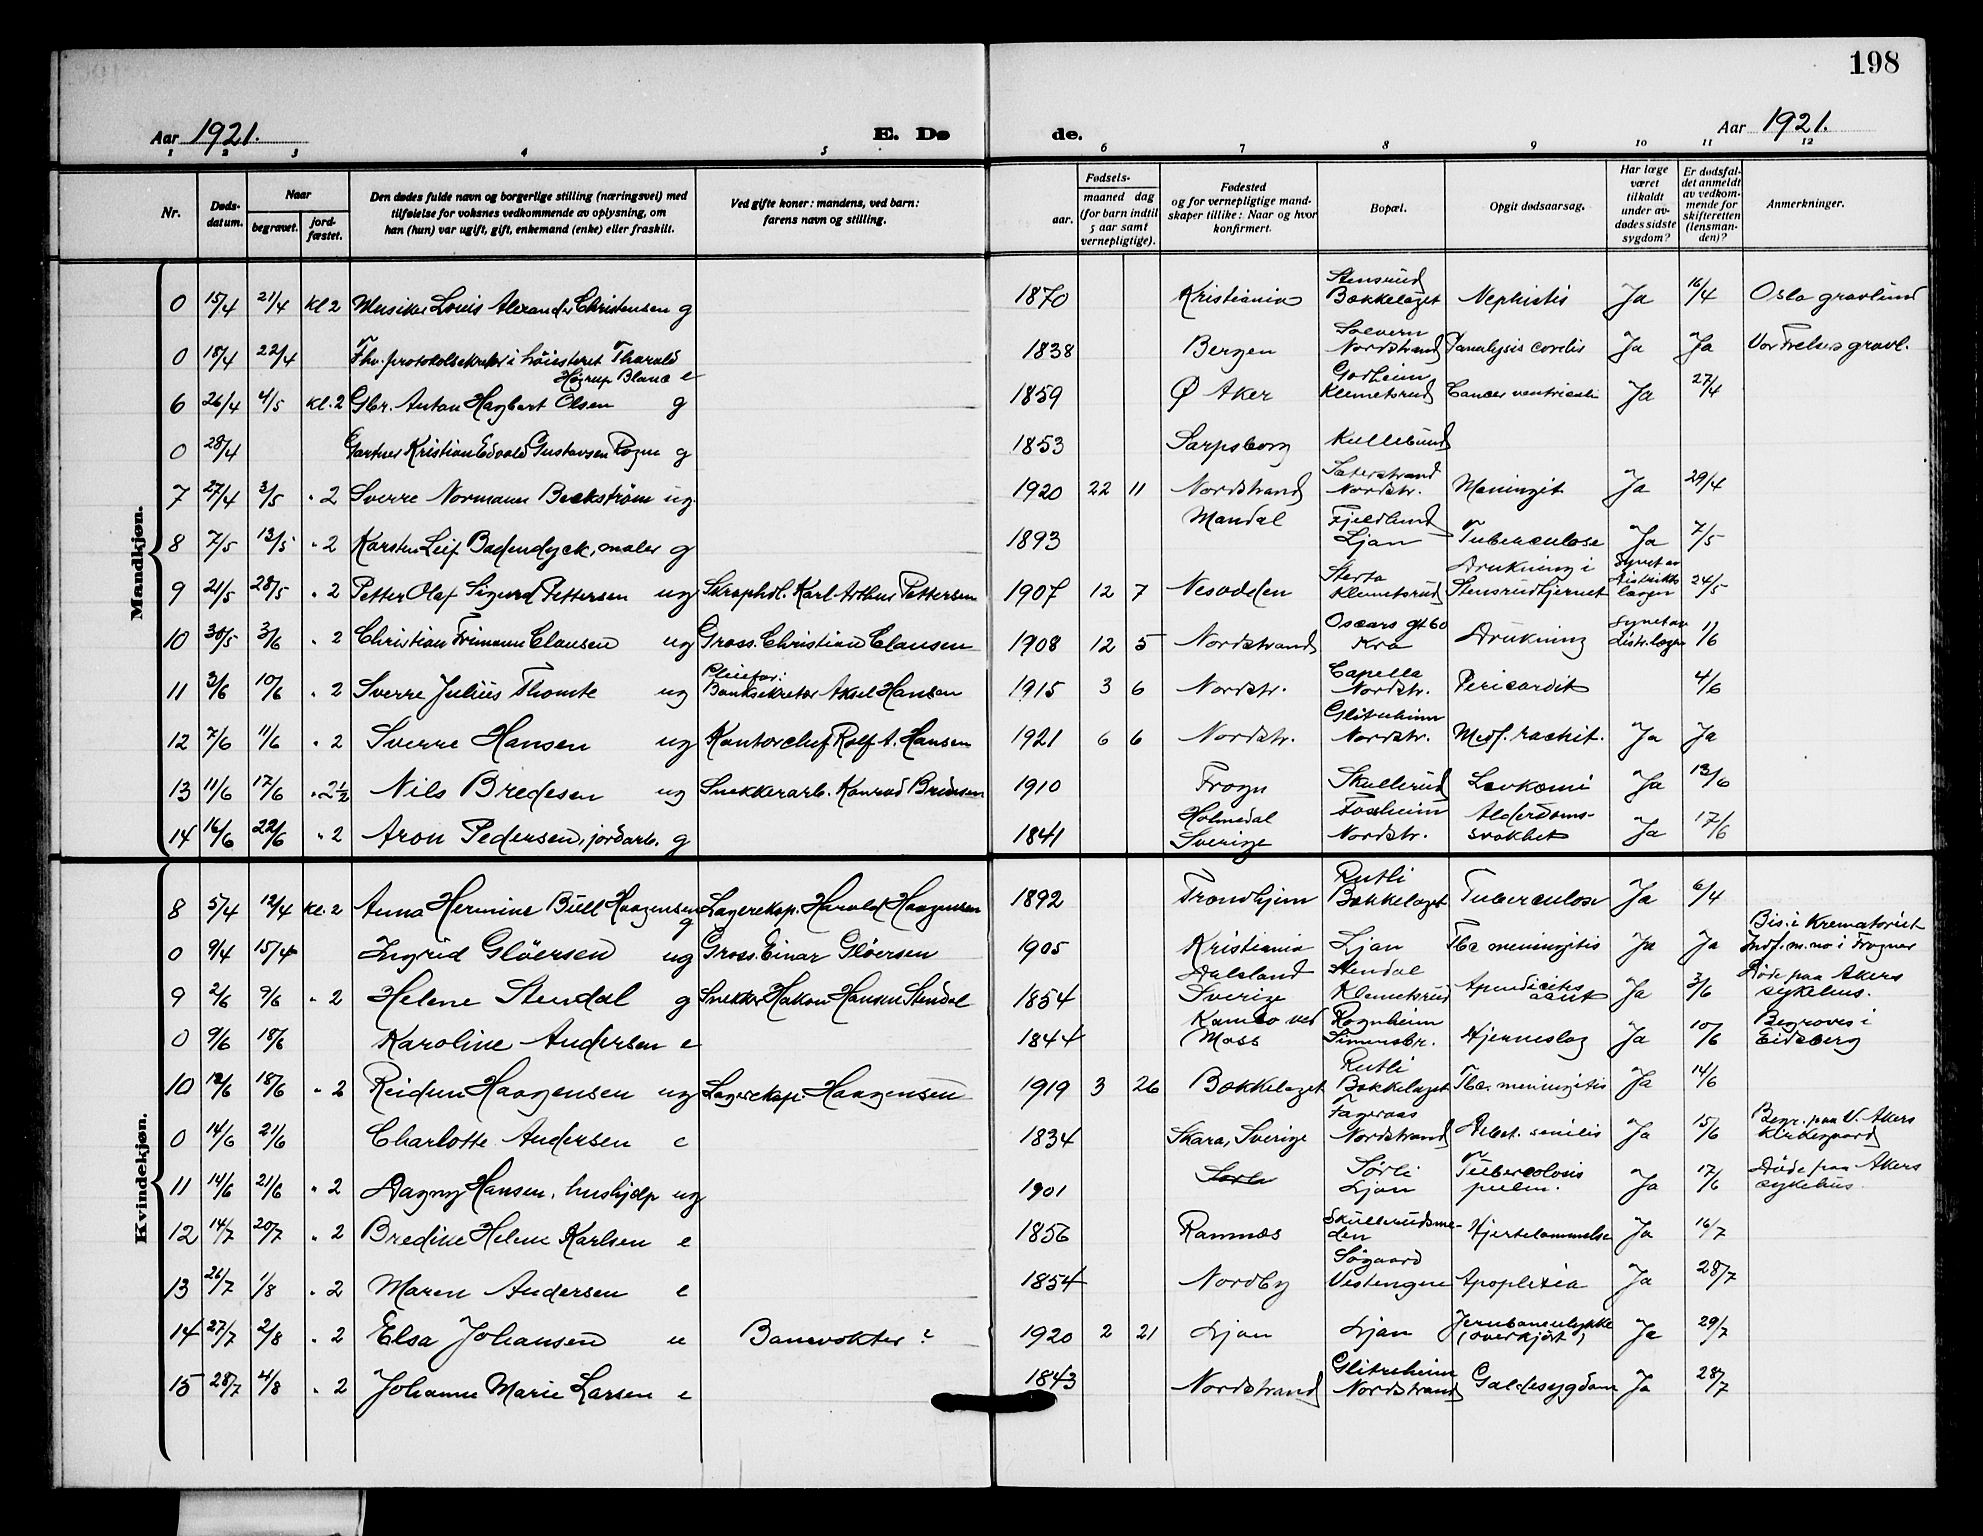 198
Aar 1921. E. Dø de. Aar 1921.
1 2 3 4 5 6 7 8 9 10 11 12
Nr. Døds-datum. Naar begravet. jord-fæstet. Den dødes fulde navn og borgerlige stilling (næringsvei) med tilføielse for voksnes vedkommende av oplysning, om han (hun) var ugift, gift, enkemand (enke) eller fraskilt. Ved gifte koner: mandens, ved barn: farens navn og stilling. Fødsels- aar. maaned dag (for barn indtil 5 aar samt vernepligtige). Fødested og for vernepligtige mandskaper tillike: Naar og hvor konfirmert. Bopæl. Opgit dødsaarsag. Har læge været tilkaldt under avdødes sidste sygdom? Er dødsfaldet anmeldt av vedkommende for skifteretten (lensmanden)? Anmerkninger.
Mandkjøn.
0 15/4 21/4 kl 2 Musiker Louis Alexander Christensen g 1870 Kristiania Stensrud Bækkelaget Nephritis Ja 16/4 Oslo gravlund
0 18/4 22/4 Fhv. protokolsekretær i høiesteret Tharald Høyrup Blanc e 1838 Bergen Solvern Nordstrand Paralysis cordis Ja Ja Vor Frelsers gravl.
6 26/4 4/5 kl. 2 Gbr. Anton Hagbart Olsen g 1859 Ø Aker Klemetsrud Cancer ventriculi Ja 27/4
0 28/4 Gartner Kristian Edvald Gustavsen Rogne g 1853 Sarpsborg Kullebund
7 27/4 3/5 " 2 Sverre Normann Beckstrøm ug 1920 22 11 Nordstrand Sæterstrand Nordstr. Meningit Ja 29/4
8 7/5 13/5 " 2 Karsten Leif Badendyck, maler g 1893 Mandal Fjeldlund Ljan Tuberculose Ja 7/5
9 21/5 28/5 " 2 Petter Olaf Sigurd Pettersen ug Skraphdl. Karl Arthur Pettersen 1907 12 7 Nesodden Sterta Klemetsrud Drukning i Stensrudtjernet Synet av distriktslægen 24/5
10 30/5 3/6 " 2 Christian Frimann Clausen ug Gross. Christian Clausen 1908 12 5 Nordstrand Oscars gt 60 Kra Drukning Synet av distr.lægen 1/6
11 3/6 10/6 " 2 Sverre Julius Thomte ug Pleiefar: Banksekretær Aksel Hansen 1915 3 6 Nordstr. Capella Nordstr. Pericardit 4/6
12 7/6 11/6 " 2 Sverre Hansen ug Kontorchef Rolf A. Hansen 1921 6 6 Nordstr. Glitreheim Nordstr. Medf. rachit. Ja Ja
13 11/6 17/6 " 2½ Nils Bredesen ug Snekkerarb. Konrad Bredesen 1910 Frogn Skullerud Levkæmi Ja 13/6
14 16/6 22/6 " 2 Aron Pedersen, jordarb. g 1841 Holmedal Sverige Foxheim Nordstr. Alderdomssvakhet Ja 17/6
Kvindekjøn.
8 5/4 12/4 kl. 2 Anna Hermine Bull Haagensen g Lagereksp. Harald Haagensen 1892 Trondhjem Rutli Bækkelaget Tuberculose Ja 6/4
0 9/4 15/4 Ingrid Gløersen ug Gross. Einar Gløersen 1905 Kristiania Ljan Tbc meningitis Ja Ja Bis. i Krematoriet Indf. m. no i Frogner
9 2/6 9/6 " 2 Helene Stendal g Snekker Hakon Hansen Stendal 1854 Dalsland Sverige Stendal Klemetsrud Apendicitis acut Ja 3/6 Døde paa Akers sykehus.
0 9/6 18/6 Karoline Andersen e 1844 Kambo ved Moss Rognheim Simensbr. Hjerneslag Ja 10/6 Begraves i Eidsberg
10 12/6 18/6 " 2 Reidun Haagensen ug Lagereksp. Haagensen 1919 3 26 Bækkelaget Rutli Bækkelaget Tbc. meningitis Ja 14/6
0 14/6 21/6 Charlotte Andersen e 1834 Skara, Sverige Fageraas Nordstrand Debet. senilis Ja 15/6 Begr. paa V. Akers Kirkegaard
11 14/6 21/6 " 2 Dagny Hansen, hushjælp ug 1901 Sørli Sørli Ljan Tuberculosis pulm. Ja 17/6 Døde paa Akers sykehus
12 14/7 20/7 " 2 Bredine Helene Karlsen e 1856 Ramnæs Skullerudsmeden Hjertelammelse Ja 16/7
13 26/7 1/8 " 2 Maren Andersen e 1854 Nordby Søgaard Vestengen Apoplexia Ja 28/7
14 27/7 2/8 " 2 Elsa Johansen u Banevokter ? 1920 2 21 Ljan Ljan Jernbaneulykke (overkjørt) Ja 29/7
15 28/7 4/8 " 2 Johanne Marie Larsen e 1843 Nordstrand Glitreheim Nordstrand Galdesygdom Ja 28/7